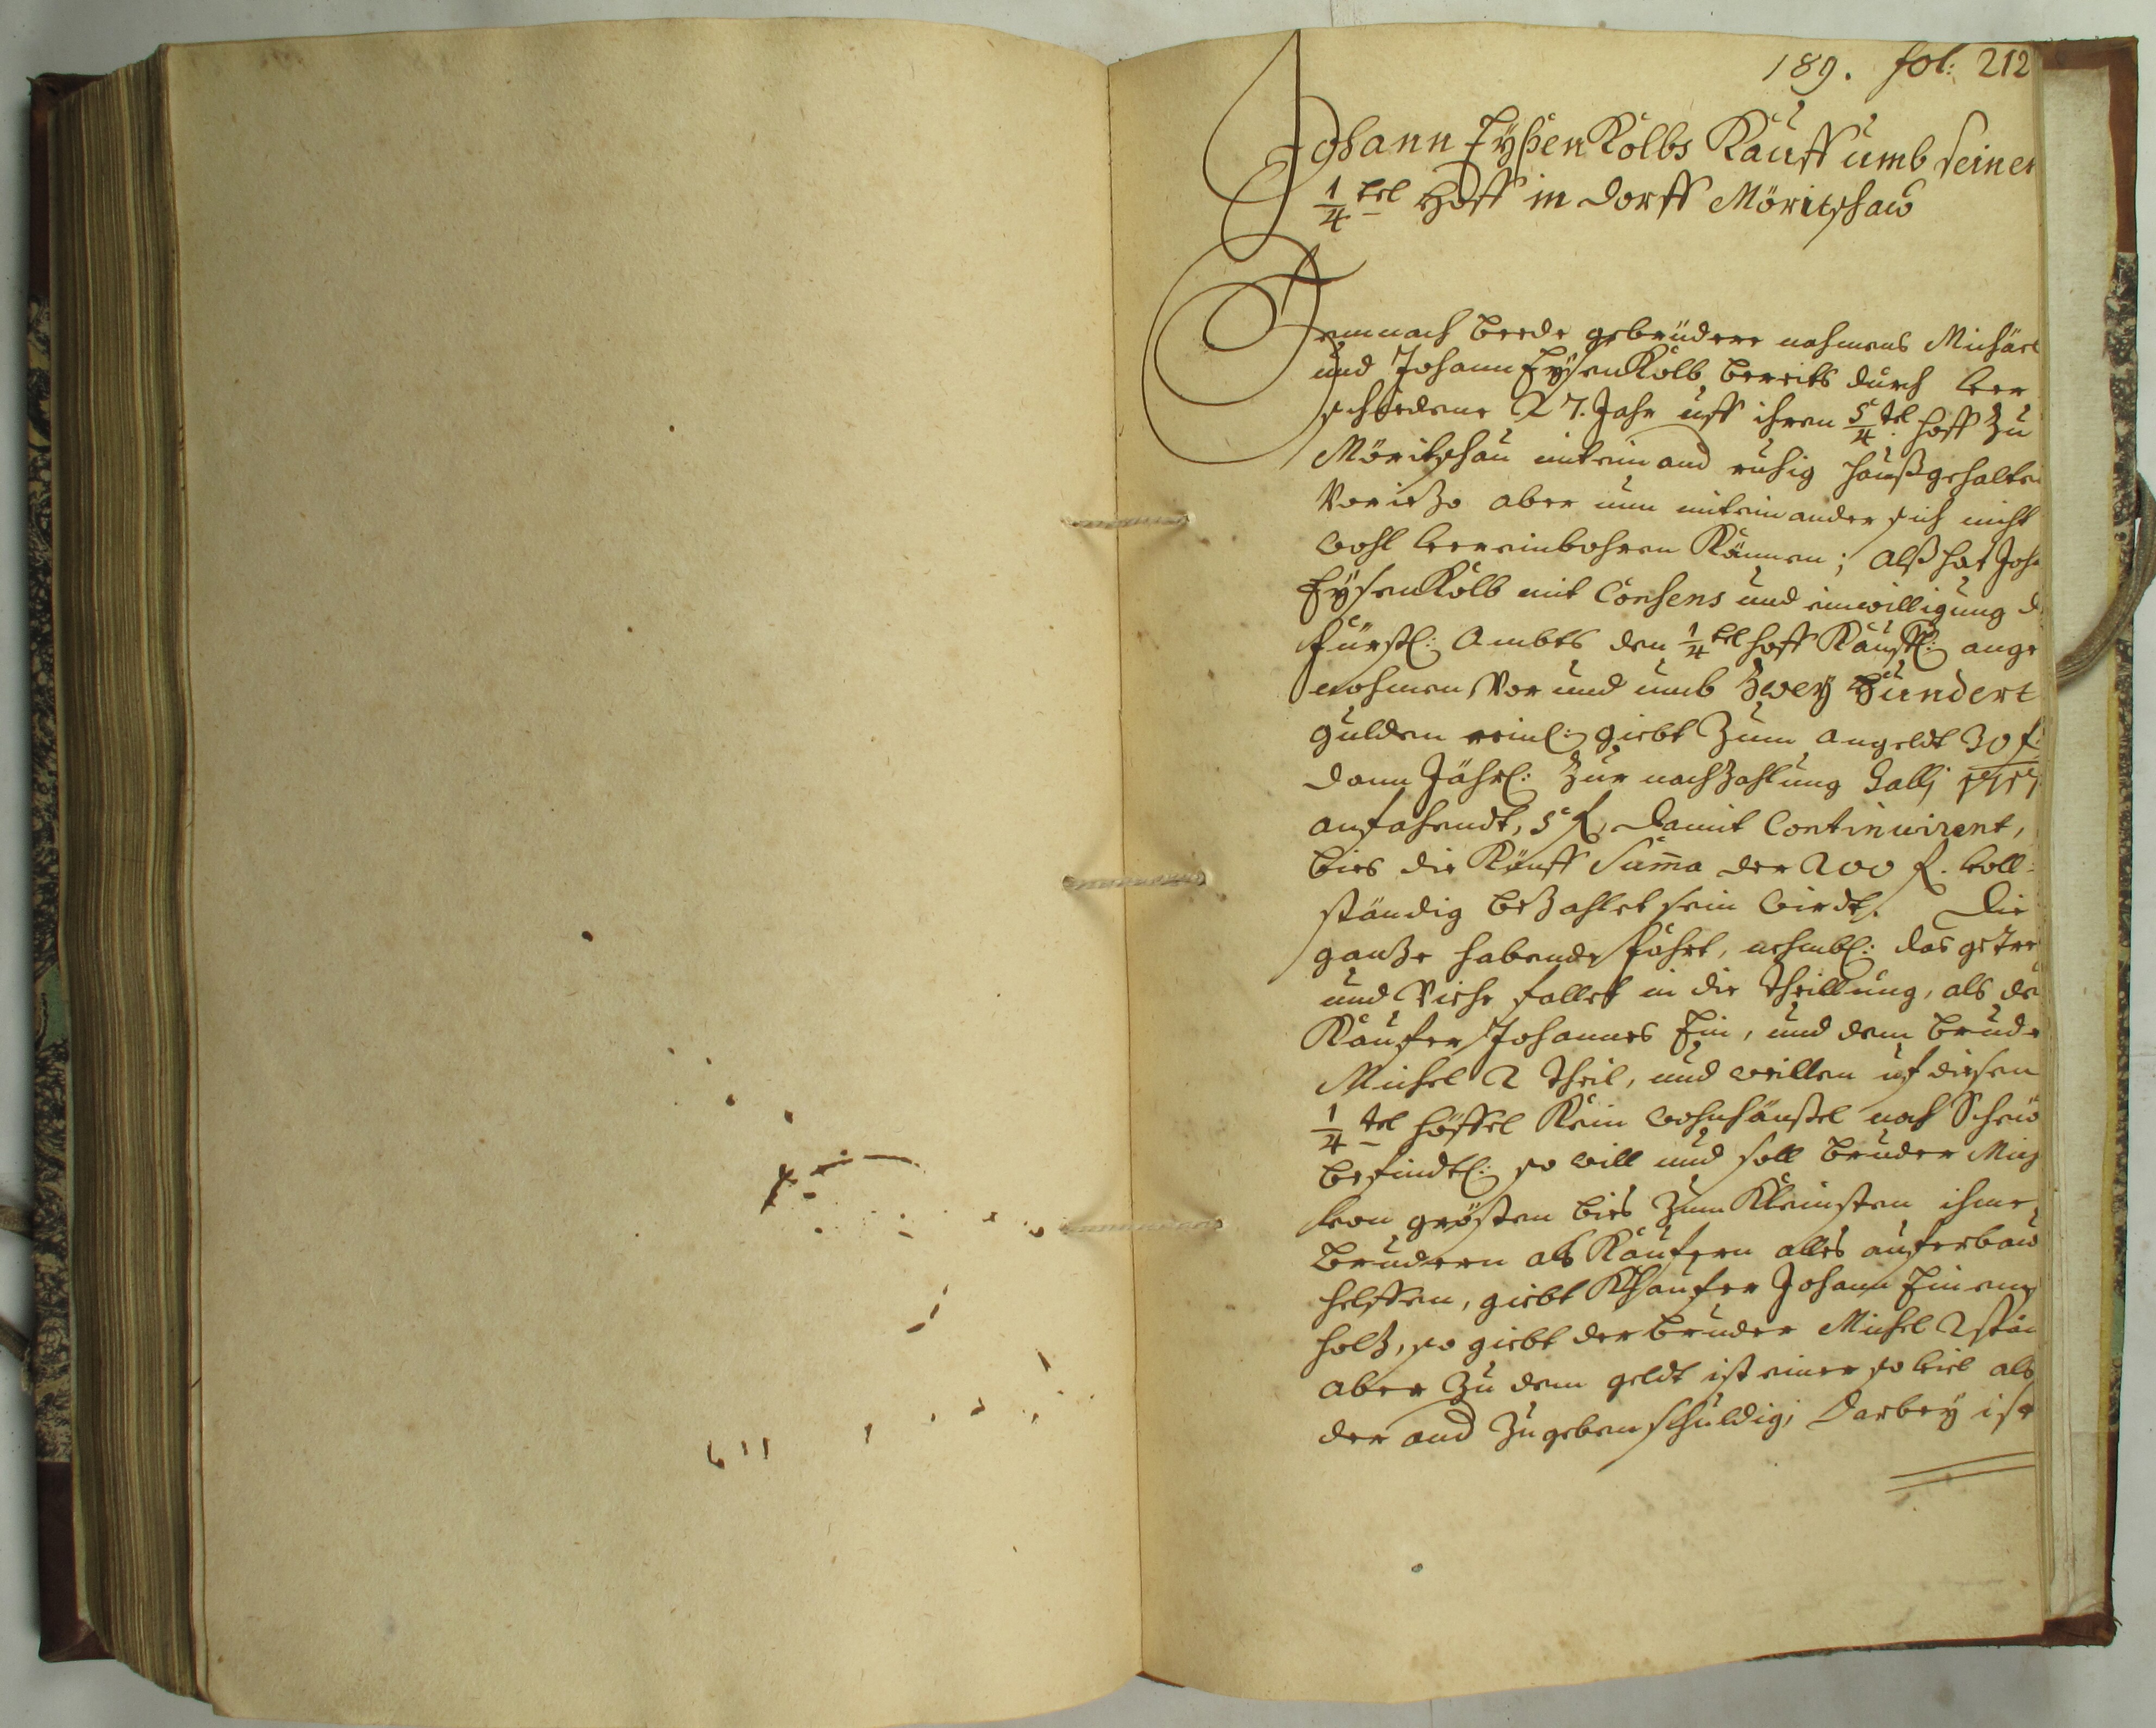 189. fol: 212
Johann Eyßenkolbs Kauff umb seinen
1/4 tel Hoff in dorff Möritschaw
Demnach beede gebrüdere nahmens Michäel
und Johann Eysenkolb, bereits durch ver
schiedene 27. Jahr uff ihren 5/4 tel hoff zu
Möritschau miteinand ruhig haußgehalten
Voriezo aber nun miteinander sich nicht
wohl vereinbahren können; alß hat Joh
Eysenkolb mit Consens und einwilligung d
fürstl: Ambts den 1/4 tel hoff Käuffl: ange
nohmen Vor und umb Zwey Hundert
gulden reinl: giebt zum angeldt 30 f
dann Jährl: zur nachzahlung Gallj
anfahendt, 5 f, damit Continuirent,
bies die Kauff Suma der 200 f. voll-
ständig bezahlet sein wirdt. Die
ganze habende fahrt, nehmbl: das getre
und Viehe fallet in die theillung, als de
Kaufer Johannes Ein, und dem brude
Michel 2 theil, und weillen uf diesen
1/4 tel höffel kein wohnhäußel noch Scheü
befindtl: so will und soll bruder Mich
von grösten bies zum kleinsten ihme
brudern als Käufern alles auferbau
helffen, giebt Khaufer Johann Einen
holz, so giebt der bruder Michel 2 stäm
aber zu dem geldt ist einer so viel als
der and zugeben schuldig, Darbey ist